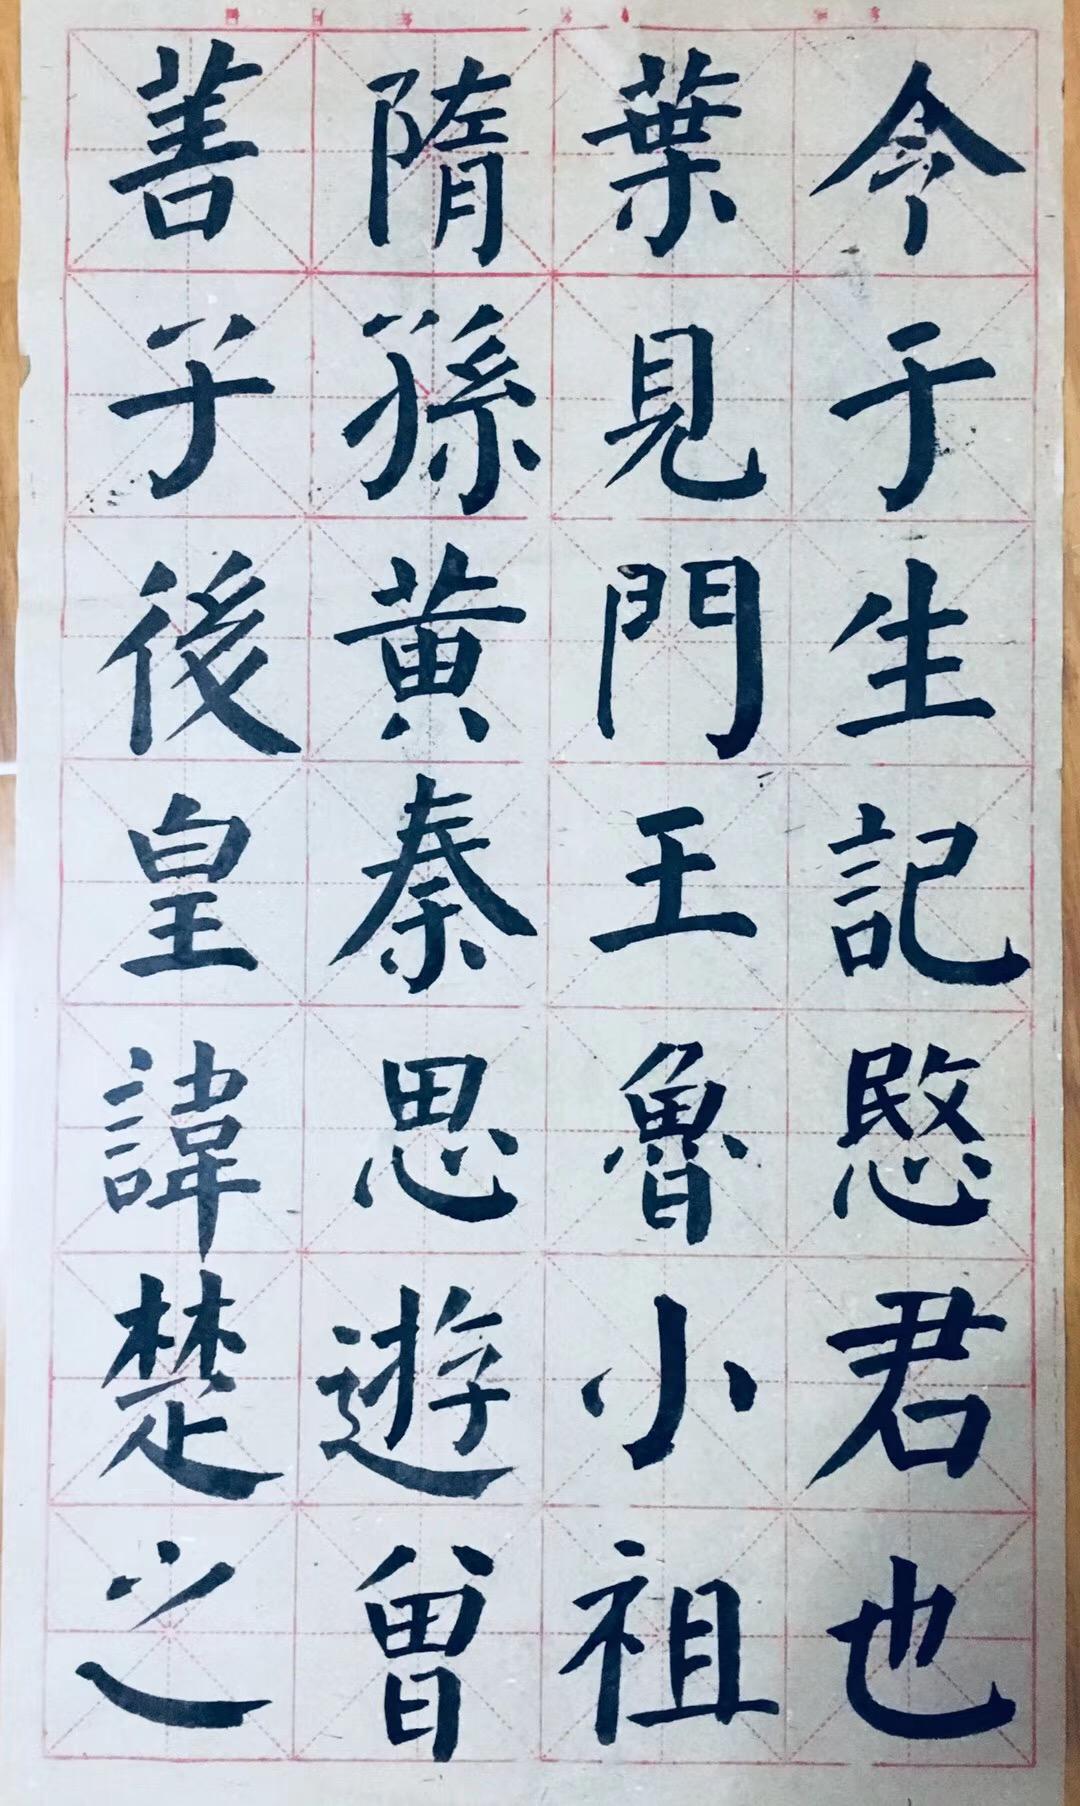 今于生記愍君也
葉見門王魯小祖
隋孫黄秦思遊曾
善子後皇諱楚之